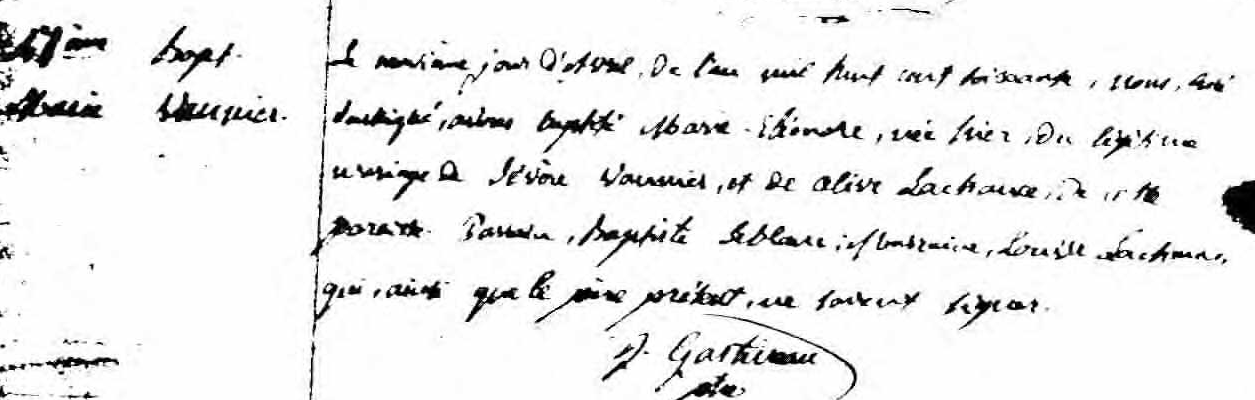 Bapt.
Marie Vaunier.
Le jour d'Avril, de l'an mil huit cent soixante, nous, curé
soussigné, avons baptisé Marie Eléonore, née hier, du légitime
mariage de Sévère Vaunier, et de Olive Lachance, de cette
paroisse. Parrain, Baptiste Leblanc; Marraine, Louise Lachance,
qui, ainsi que le père présent, ne savent signer.
J. Gastineau
ptre